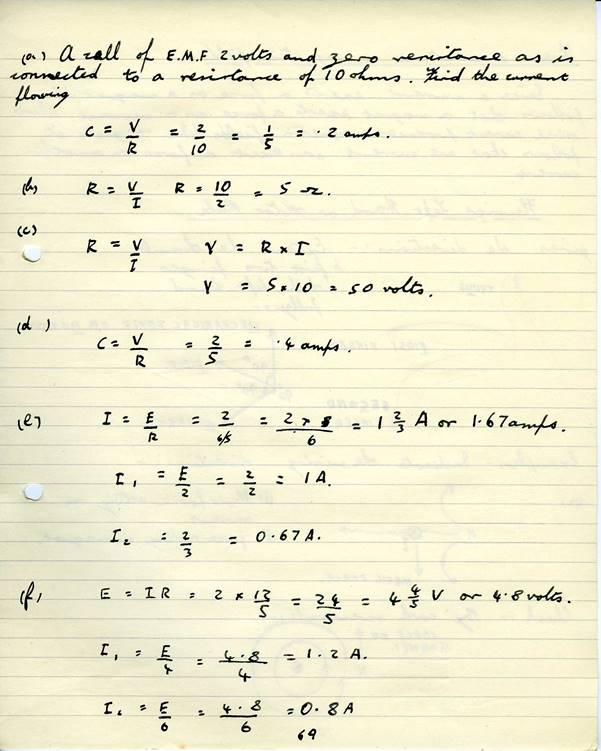 (a) A cell of E.M.F. 2 volts and zero resistance as is
connected to a resistance of 10 ohms. Find the current
flowing
C = V/R = 2/10 = 1/5 = .2 amps.
(b) R = V/I R = 10/2 = 5 Ω.
(c)
R = V/I V = R × I
V = 5 × 10 = 50 volts.
(d) C = V/R = 2/5 = .4 amps.
(e) I = E/R = 2/6/5 = 2 × 5/6 = 1 2/3 A or 1.67 amps.
I₁ = E/2 = 2/2 = 1 A.
I₂ = 2/3 = 0.67 A.
(f) E = IR = 2 × 12/5 = 24/5 = 4 4/5 V or 4.8 volts.
I₁ = E/4 = 4.8/4 = 1.2 A.
I₂ = E/6 = 4.8/6 = 0.8 A
69